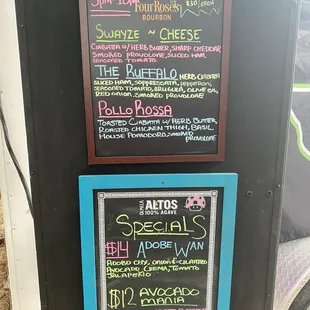 5PM-10PM
Four Roses
BOURBON
$30/EACH
SWAYZE ~ CHEESE
CIABATTA W/ HERB BUTTER, SHARP CHEDDAR
SMOKED PROVOLONE, SLICED HAM,
SEASONED TOMATO
THE BUFFALO HERB CIABATTA
SLICED HAM, SOPPRESSATA, PEPPERONI,
SEASONED TOMATO, ARUGULA, OLIVE OIL,
RED ONION, SMOKED PROVOLONE
POLLO ROSSA
TOASTED CIABATTA W/ HERB BUTTER,
ROASTED CHICKEN THIGH, BASIL
HOUSE POMODORO, SMOKED
PROVOLONE
ALTOS
IS 100% AGAVE
SPECIALS
$14 ADOBE WAN
ADOBO CHX, ONION & CILANTRO
AVOCADO CREMA, TOMATO
JALAPEÑO
$12 AVOCADO
MANIA